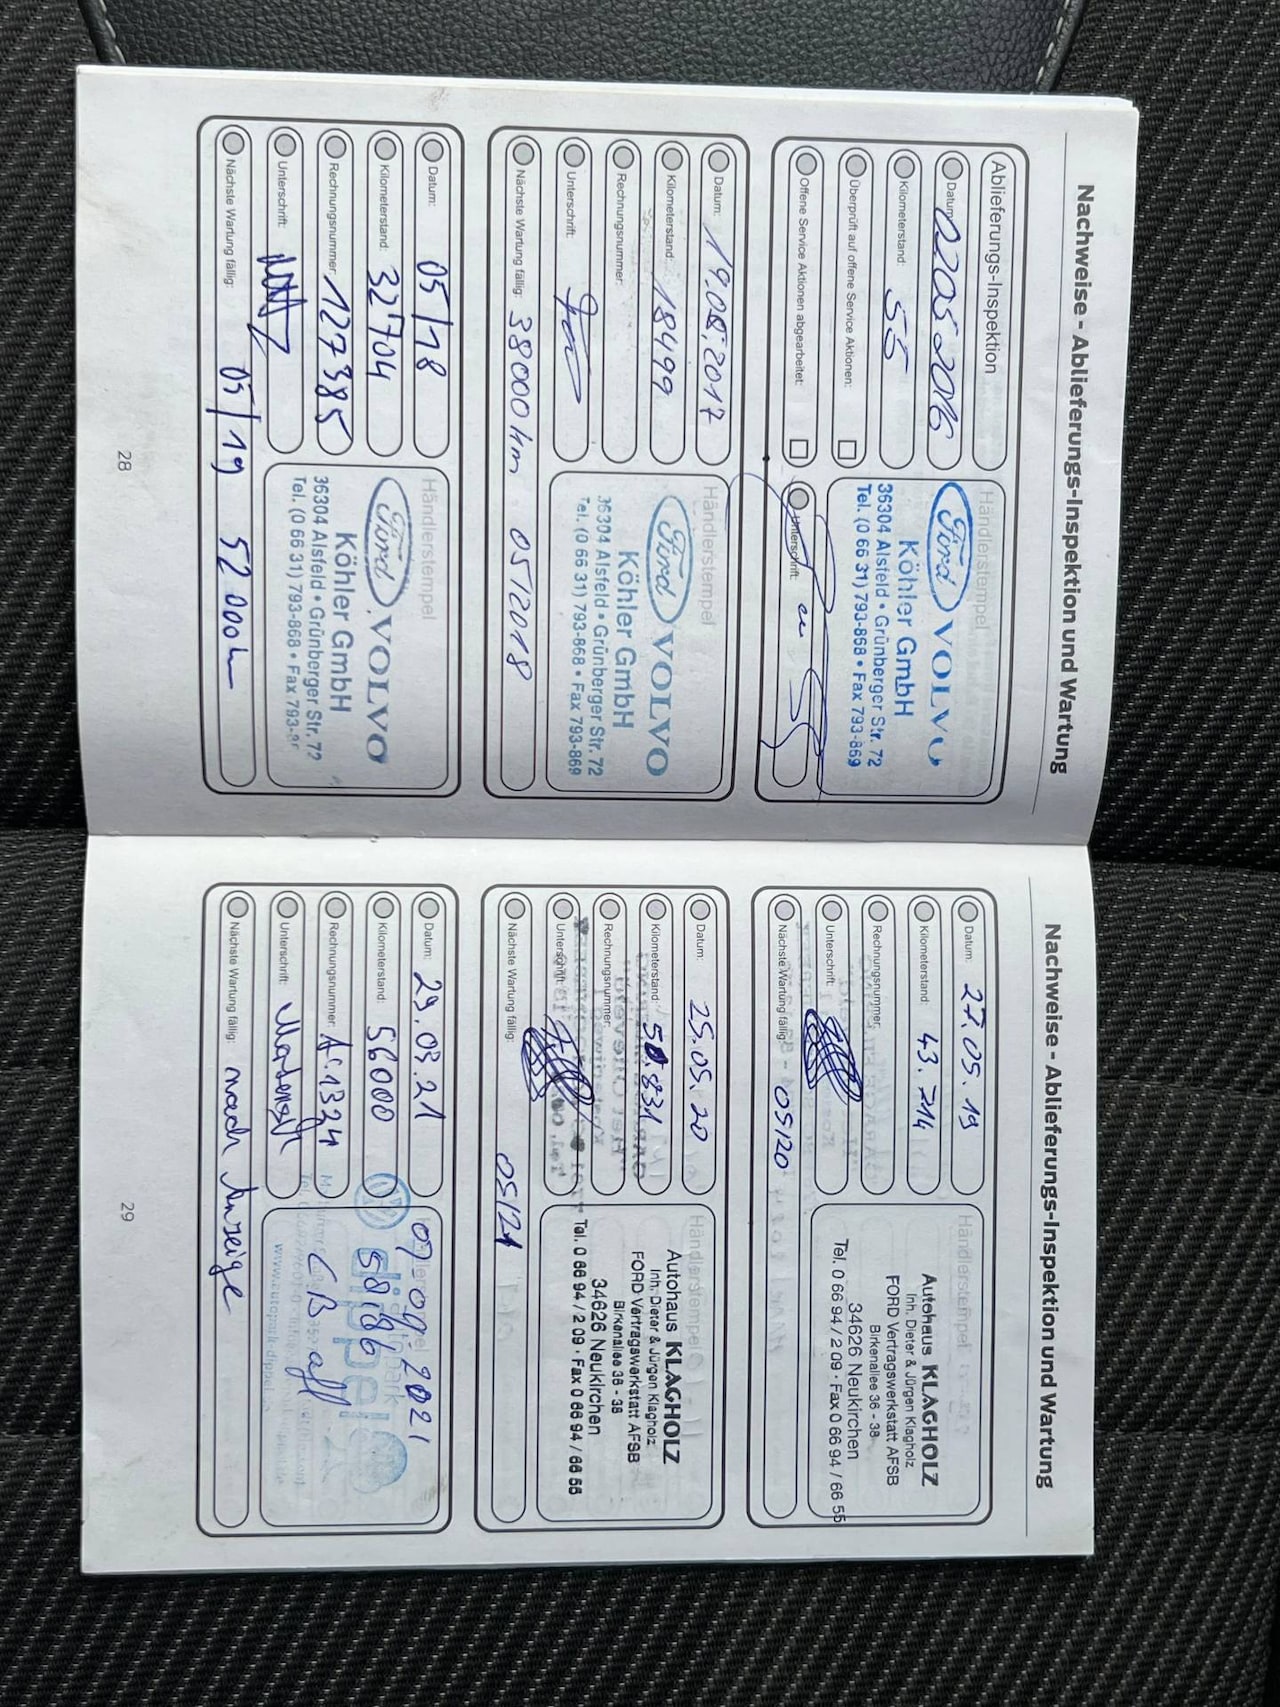 Nachweise - Ablieferungs-Inspektion und Wartung
Ablieferungs-Inspektion
Datum: 02052016
Kilometerstand: 55
Überprüft auf offene Service Aktionen:
Offene Service Aktionen abgearbeitet:
Händlerstempel
Ford VOLVO
Köhler GmbH
36304 Alsfeld • Grünberger Str. 72
Tel. (0 66 31) 793-868 • Fax 793-869
Unterschrift:
Datum: 19.08.2017
Kilometerstand: 18499
Rechnungsnummer:
Unterschrift:
Nächste Wartung fällig: 38000 km 05/2018
Händlerstempel
Ford VOLVO
Köhler GmbH
36304 Alsfeld • Grünberger Str. 72
Tel. (0 66 31) 793-868 • Fax 793-869
Datum: 05/18
Kilometerstand: 32704
Rechnungsnummer: 127385
Unterschrift:
Nächste Wartung fällig: 05/19 52 000
Händlerstempel
Ford VOLVO
Köhler GmbH
36304 Alsfeld • Grünberger Str. 72
Tel. (0 66 31) 793-868 • Fax 793-
28
Nachweise - Ablieferungs-Inspektion und Wartung
Datum: 27.05.19
Kilometerstand: 43.714
Rechnungsnummer:
Unterschrift:
Nächste Wartung fällig: 05/20
Händlerstempel
Autohaus KLAGHOLZ
Inh. Dieter & Jürgen Klagholz
FORD Vertragswerkstatt AFSB
Birkenallee 36 - 38
34626 Neukirchen
Tel. 0 66 94 / 2 09 · Fax 0 66 94 / 66 55
Datum: 25.05.20
Kilometerstand: 50.831
Rechnungsnummer:
Unterschrift:
Nächste Wartung fällig: 05/21
Händlerstempel
Autohaus KLAGHOLZ
Inh. Dieter & Jürgen Klagholz
FORD Vertragswerkstatt AFSB
Birkenallee 36 - 38
34626 Neukirchen
Tel. 0 66 94 / 2 09 · Fax 0 66 94 / 66 55
Datum: 29.03.21
Kilometerstand: 56000
Rechnungsnummer: AS.1324
Unterschrift:
Nächste Wartung fällig: nach Anzeige
07 09 2021
58186
dippel
29